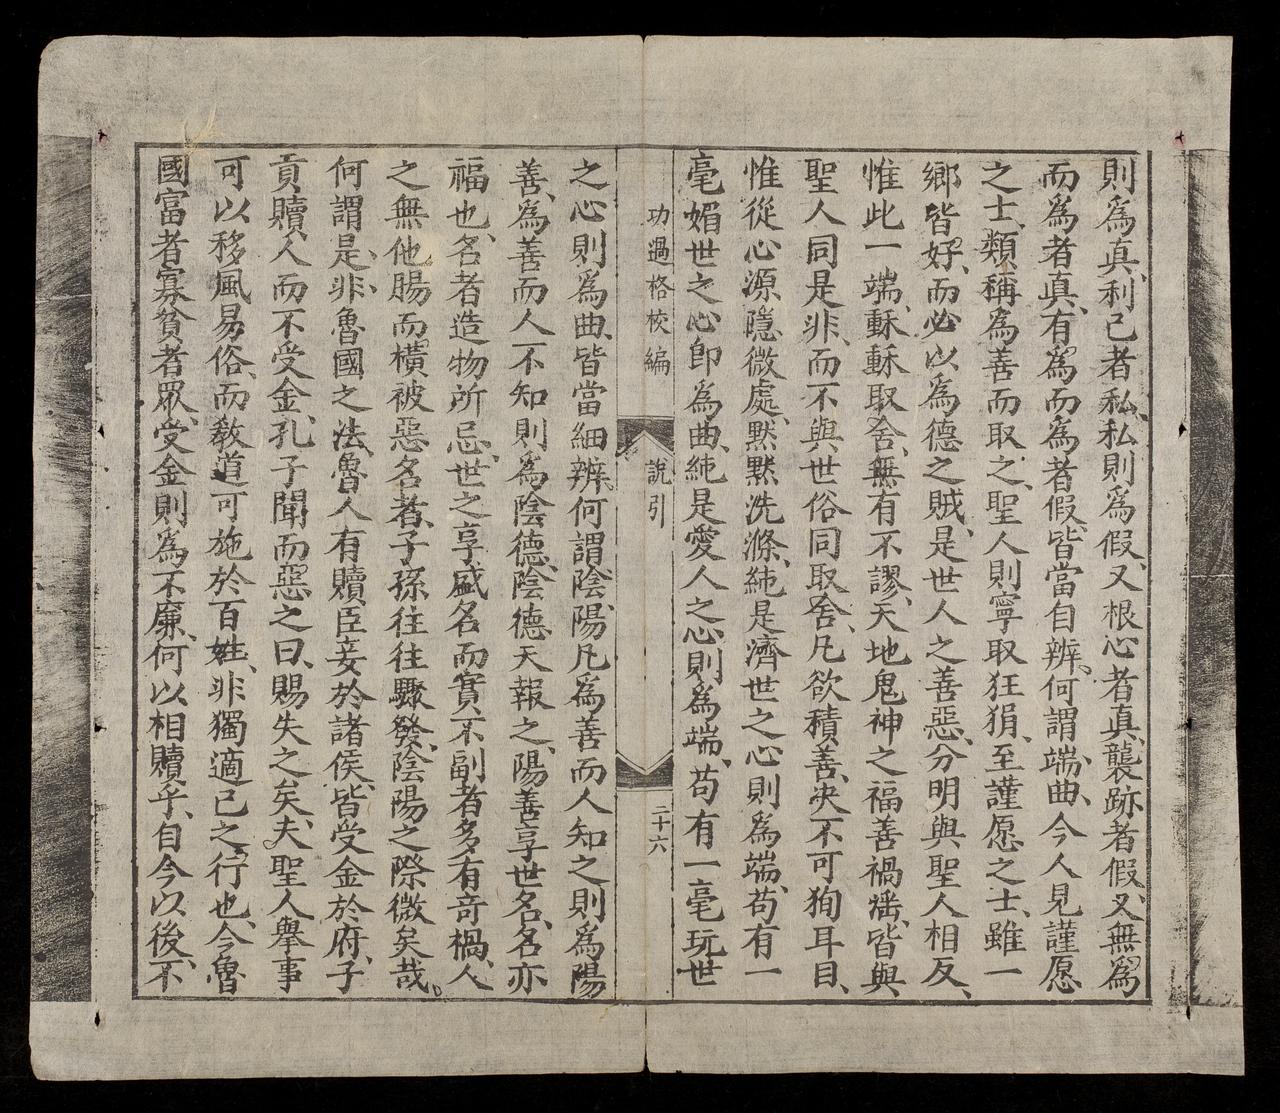 則爲真、利己者私、私則爲假、又根心者真、襲跡者假、又無爲
而爲者真、有爲而爲者假、皆當自辨、何謂端曲、今人見謹愿
之士、類稱爲善而取之、聖人則寧取狂狷、至謹愿之士、雖一
鄉皆好、而必以爲德之賊、是世人之善惡、分明與聖人相反、
惟此一端、穌穌取舍、無有不謬、天地鬼神之福善禍滛、皆與
聖人同是非、而不與世俗同取舍、凡欲積善、决不可狥耳目、
惟從心源隱微處、默默洗滌、純是濟世之心則爲端、苟有一
毫媚世之心即爲曲、純是愛人之心、則爲端、苟有一毫玩世
功過格校編
說引
二十六
之心則爲曲、皆當細辨、何謂陰陽、凡爲善而人知之則爲陽
善、爲善而人不知則爲陰德、陰德天報之、陽善享世名、名亦
福也、名者造物所忌、世之享盛名而實不副者多有奇禍、人
之無他腸而橫被惡名者、子孫往往驟發、陰陽之際微矣哉、
何謂是非、魯國之法、魯人有贖臣妾於諸侯、皆受金於府、子
貢贖人而不受金、孔子聞而惡之曰、賜失之矣、夫聖人舉事
可以移風易俗、而敎道可施於百姓、非獨適己之行也、今魯
國富者寡貧者眾、受金則爲不廉、何以相贖乎、自今以後、不